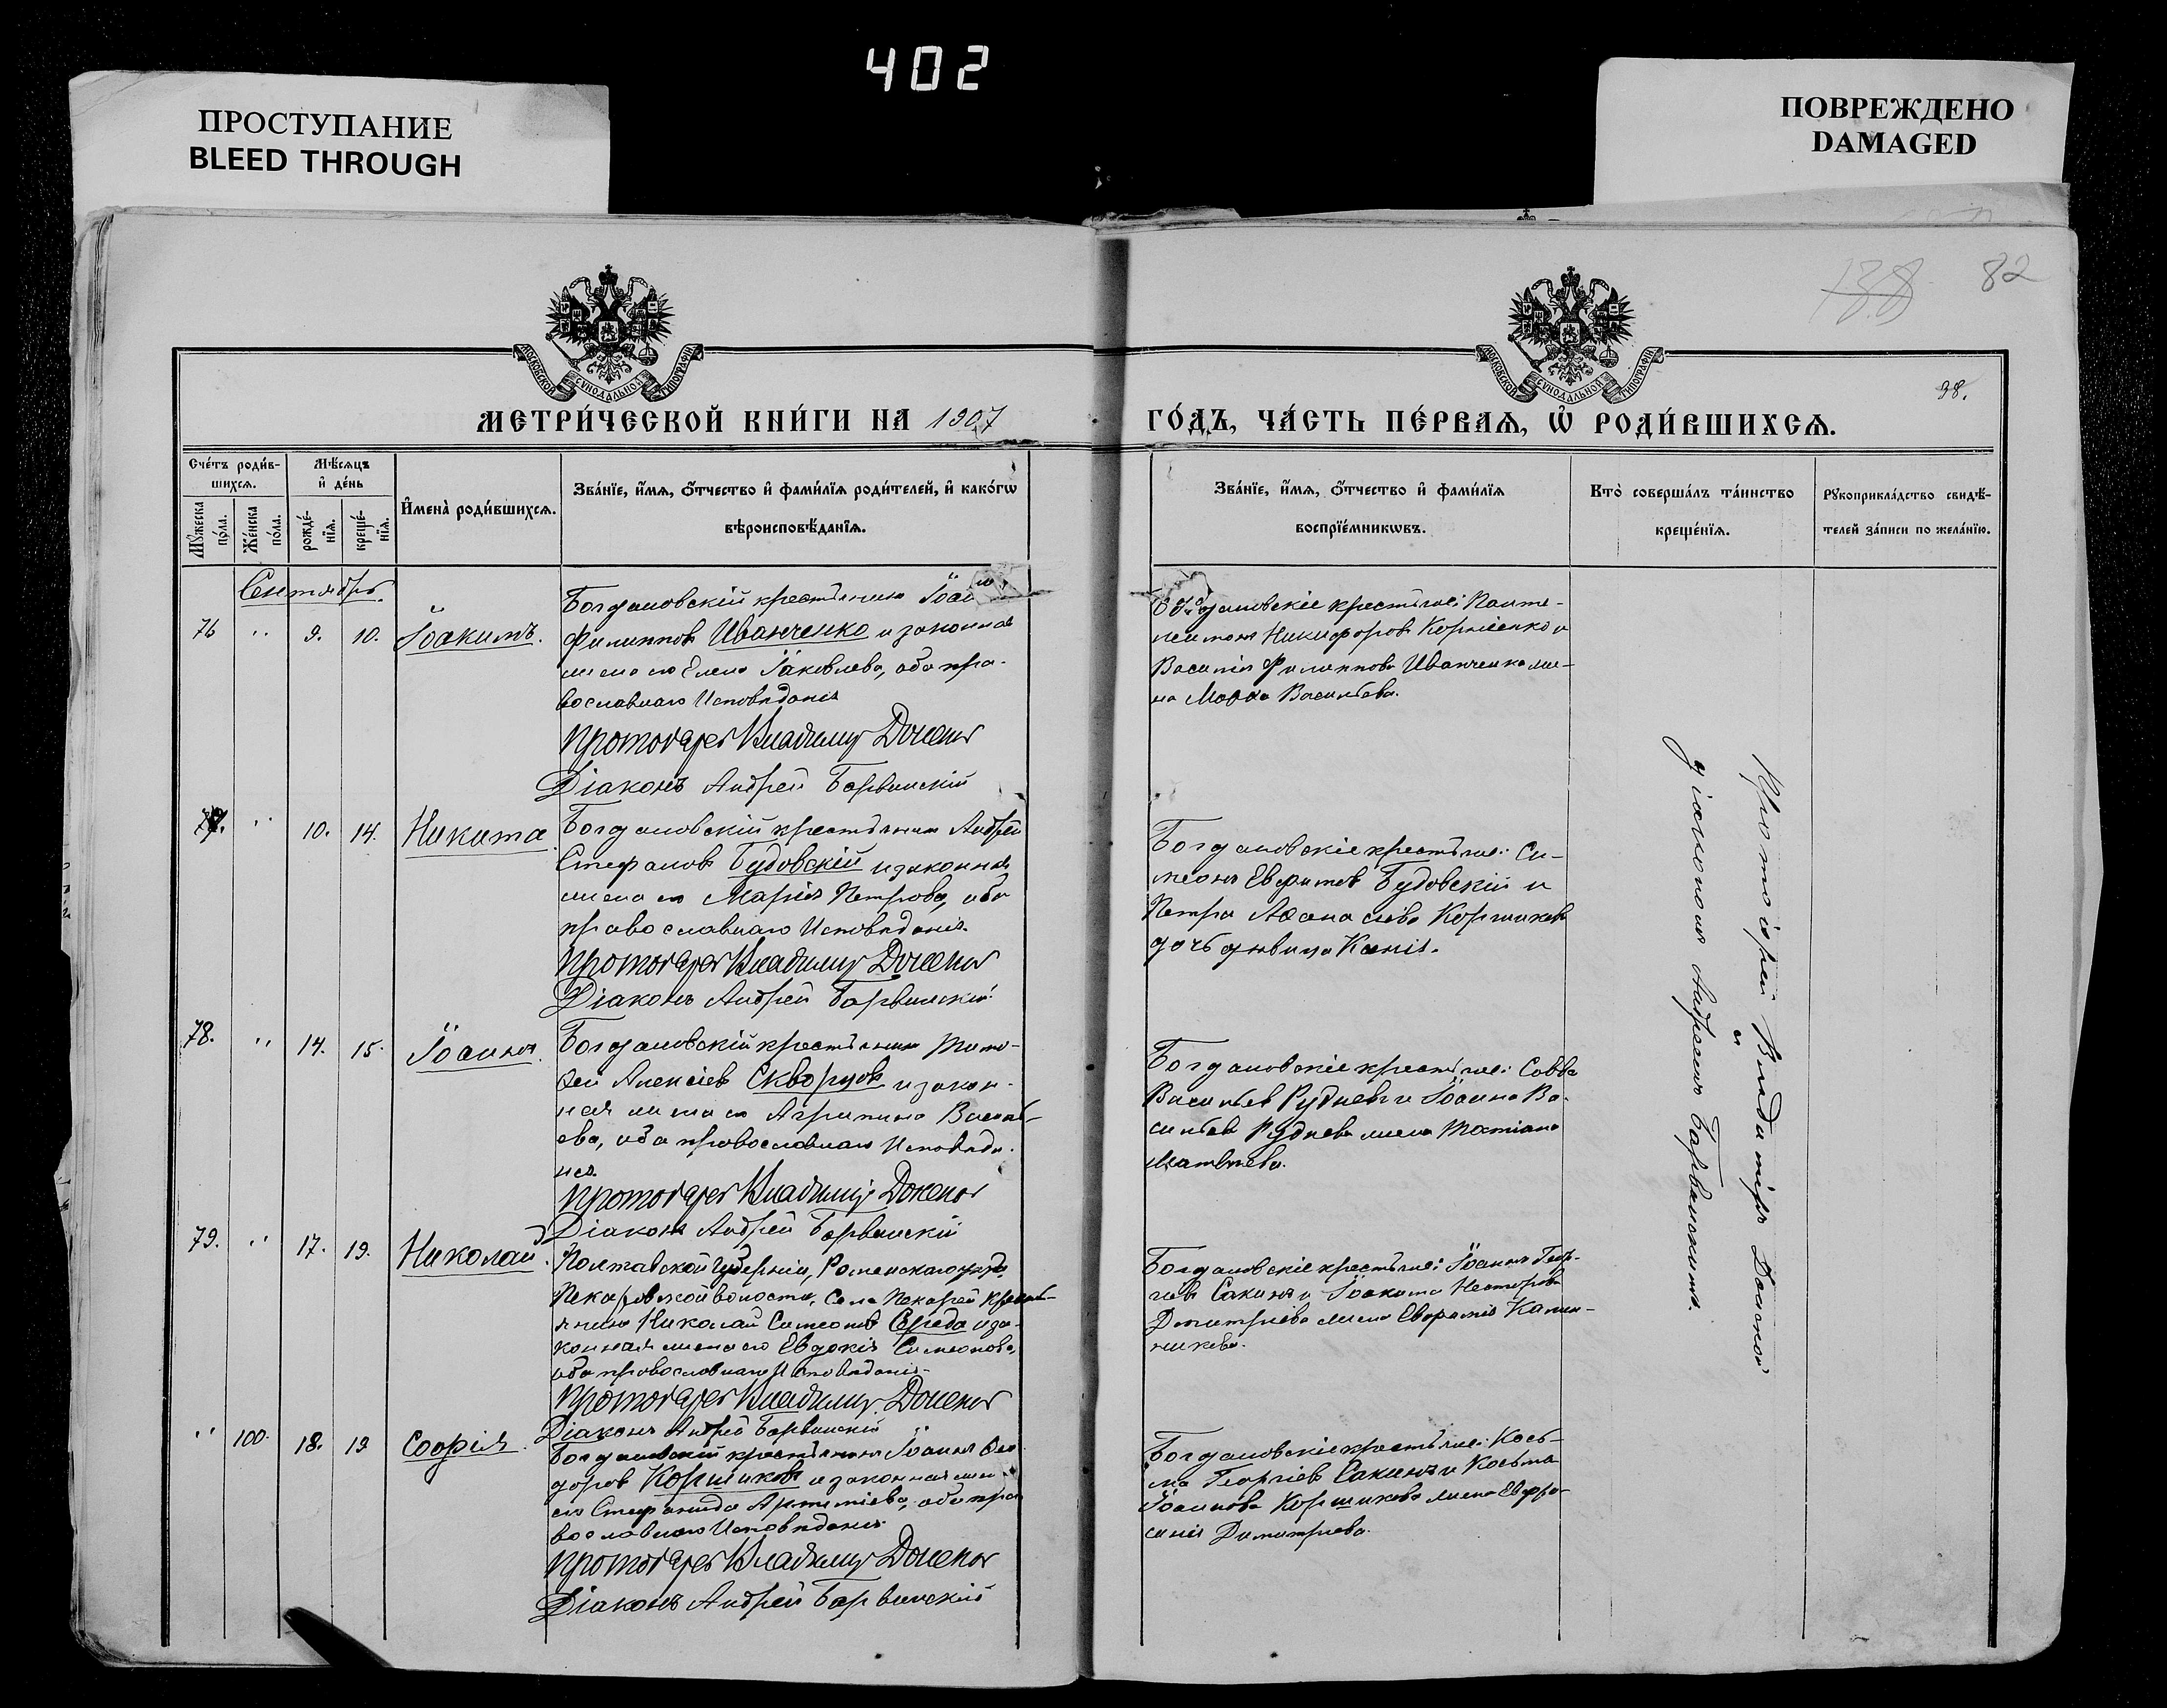 402
ПРОСТУПАНИЕ
BLEED THROUGH
ПОВРЕЖДЕНО
DAMAGED
138 82
98.
МОСКОВСКОЙ СѴНОДАЛЬНОЙ ТИПОГРАФІИ
МОСКОВСКОЙ СѴНОДАЛЬНОЙ ТИПОГРАФІИ
МЕТРИ́ЧЕСКОЙ КНИ́ГИ НА 1907
ГО́ДЪ, ЧА́СТЬ ПЕ́РВАѦ, Ѽ РОДИ́ВШИХСѦ.
Сче́тъ роди́в-
шихсѧ.
Мꙋ́жеска по́ла.
Же́нска по́ла.
Мѣ́сѧцъ
и҆ де́нь
рожде́-
нїѧ.
креще́-
нїѧ.
И҆мена̀ роди́вшихсѧ.
Зва́нїе, и҆́мѧ, ѻ҆́тчество и҆ фами́лїѧ роди́телей, и҆ како́гѡ
вѣроисповѣ́данїѧ.
Зва́нїе, и҆́мѧ, ѻ҆́тчество и҆ фами́лїѧ
воспрїе́мникѡвъ.
Кто̀ соверша́лъ та́инство
креще́нїѧ.
Рꙋкоприкла́дство свидѣ́-
телей за́писи по жела́нїю.
Сентябрь.
76 " 9. 10. Іоакимъ.
Богдановскій крестьянинъ Іоан
Филипповъ Иванченко и законная
жена его Елена Іаковлева, оба пра-
вославнаго Исповѣданія
Протоіерей Владиміръ Доненко
Діаконъ Андрей Барвинскій
Богдановскіе крестьяне: Панте-
леимонъ Никифоровъ Корніенко и
Василія Филиппова Иванченка же-
на Марѳа Васильева.
77. " 10. 14. Никита
Богдановскій крестьянинъ Андрей
Стефановъ Будовскій и законная
жена его Марія Петрова, оба
православнаго Исповѣданія.
Протоіерей Владиміръ Доненко
Діаконъ Андрей Барвинскій
Богдановскіе крестьяне: Си-
меонъ Евфимовъ Будовскій и
Петра Аѳанасіева Коршикова
дочь дѣвица Ксенія.
78. " 14. 15. Іоаннъ.
Богдановскій крестьянинъ Тимо-
ѳей Алексіевъ Скворцовъ и закон-
ная жена его Агрипина Василь-
ева, оба православнаго Исповѣда-
нія.
Протоіерей Владиміръ Доненко
Діаконъ Андрей Барвинскій
Богдановскіе крестьяне: Савва
Васильевъ Рудневъ и Іоанна Ва-
сильева Руднева жена Татіана
Матвѣева.
79. " 17. 19. Николай.
Полтавской губерніи, Роменскаго уѣзда,
Пекаровской волости, Села Пекарей кресть-
янинъ Николай Симеоновъ Середа и за-
конная жена его Евдокія Симеонова,
оба православнаго Исповѣданія.
Протоіерей Владиміръ Доненко
Діаконъ Андрей Барвинскій
Богдановскіе крестьяне: Іоаннъ Геор-
гіевъ Сакунъ и Іоакима Несторова
Димитріева жена Евфимія Калин-
никова.
" 100. 18. 19 Софія.
Богдановскій крестьянинъ Іоаннъ Ѳео-
доровъ Коршиковъ и законная жена
его Стефанида Артеміева, оба пра-
вославнаго Исповѣданія.
Протоіерей Владиміръ Доненко
Діаконъ Андрей Барвинскій
Богдановскіе крестьяне: Кось-
ма Георгіевъ Сакунъ и Косьма
Іоаннова Коршикова жена Евфро-
синія Димитріева.
Протоіерей Владиміръ Доненко
и
діакономъ Андреемъ Барвинскимъ.